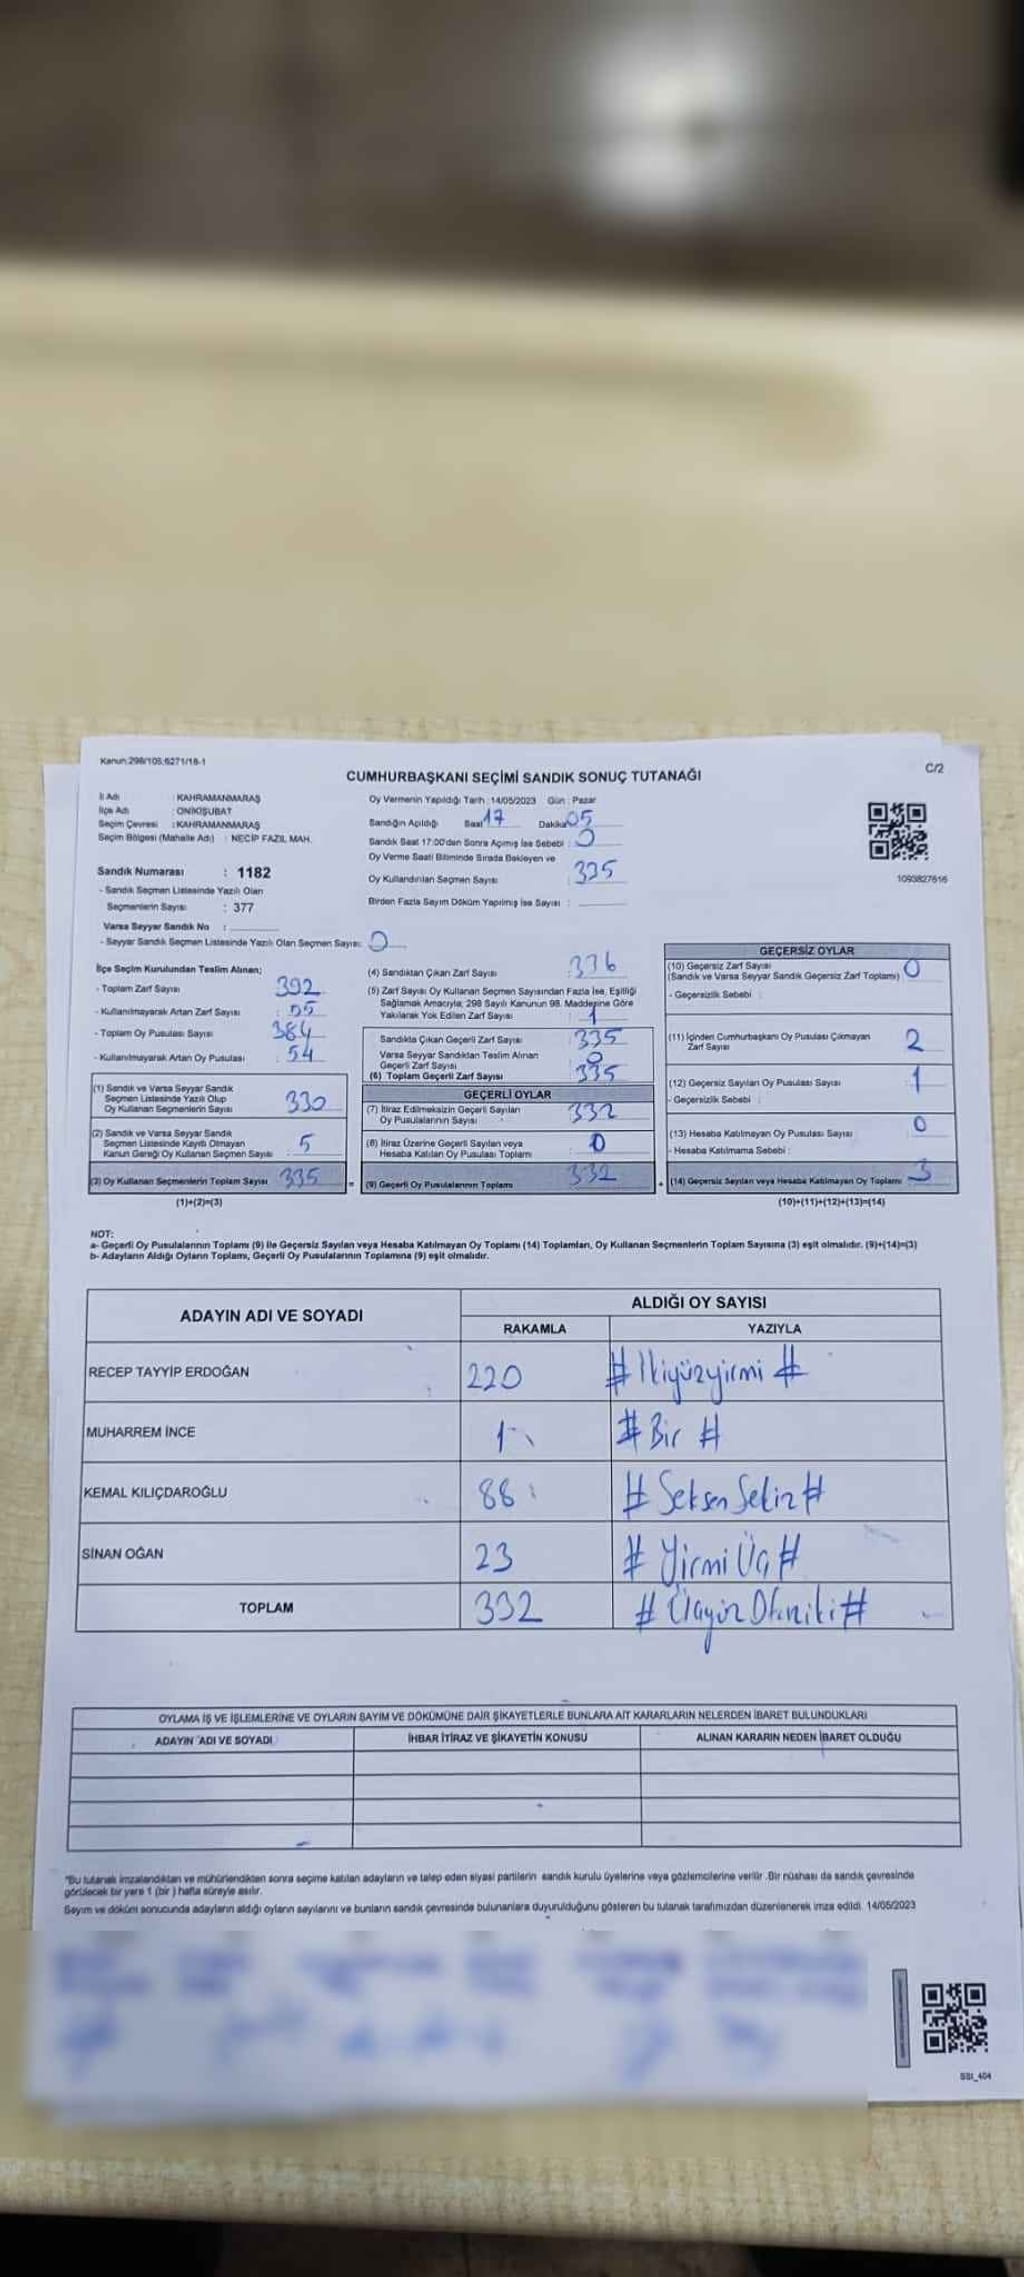 Kanun:298/105;6271/18-1
C/2
CUMHURBAŞKANI SEÇİMİ SANDIK SONUÇ TUTANAĞI
İl Adı : KAHRAMANMARAŞ
İlçe Adı : ONİKİŞUBAT
Seçim Çevresi : KAHRAMANMARAŞ
Seçim Bölgesi (Mahalle Adı) : NECİP FAZIL MAH.
Sandık Numarası : 1182
- Sandık Seçmen Listesinde Yazılı Olan
Seçmenlerin Sayısı : 377
Varsa Seyyar Sandık No :
- Seyyar Sandık Seçmen Listesinde Yazılı Olan Seçmen Sayısı: 0
Oy Vermenin Yapıldığı Tarih : 14/05/2023 Gün : Pazar
Sandığın Açıldığı Saat 17 Dakika 05
Sandık Saat 17:00'den Sonra Açılmış İse Sebebi : 0
Oy Verme Saati Bitiminde Sırada Bekleyen ve
Oy Kullandırılan Seçmen Sayısı : 335
Birden Fazla Sayım Döküm Yapılmış İse Sayısı :
1093827616
İlçe Seçim Kurulundan Teslim Alınan;
- Toplam Zarf Sayısı : 392
- Kullanılmayarak Artan Zarf Sayısı : 55
- Toplam Oy Pusulası Sayısı 384
- Kullanılmayarak Artan Oy Pusulası : 54
(1) Sandık ve Varsa Seyyar Sandık
Seçmen Listesinde Yazılı Olup
Oy Kullanan Seçmenlerin Sayısı 330
(2) Sandık ve Varsa Seyyar Sandık
Seçmen Listesinde Kayıtlı Olmayan
Kanun Gereği Oy Kullanan Seçmen Sayısı : 5
(3) Oy Kullanan Seçmenlerin Toplam Sayısı 335
(1)+(2)=(3)
(4) Sandıktan Çıkan Zarf Sayısı : 336
(5) Zarf Sayısı Oy Kullanan Seçmen Sayısından Fazla İse, Eşitliği
Sağlamak Amacıyla; 298 Sayılı Kanunun 98. Maddesine Göre
Yakılarak Yok Edilen Zarf Sayısı : 1
Sandıkta Çıkan Geçerli Zarf Sayısı : 335
Varsa Seyyar Sandıktan Teslim Alınan
Geçerli Zarf Sayısı : 0
(6) Toplam Geçerli Zarf Sayısı : 335
GEÇERLİ OYLAR
(7) İtiraz Edilmeksizin Geçerli Sayılan
Oy Pusulalarının Sayısı : 332
(8) İtiraz Üzerine Geçerli Sayılan veya
Hesaba Katılan Oy Pusulası Toplamı : 0
= (9) Geçerli Oy Pusulalarının Toplamı 332
GEÇERSİZ OYLAR
(10) Geçersiz Zarf Sayısı : 0
(Sandık ve Varsa Seyyar Sandık Geçersiz Zarf Toplamı)
- Geçersizlik Sebebi :
(11) İçinden Cumhurbaşkanı Oy Pusulası Çıkmayan
Zarf Sayısı 2
(12) Geçersiz Sayılan Oy Pusulası Sayısı : 1
- Geçersizlik Sebebi :
(13) Hesaba Katılmayan Oy Pusulası Sayısı : 0
- Hesaba Katılmama Sebebi :
+ (14) Geçersiz Sayılan veya Hesaba Katılmayan Oy Toplamı 3
(10)+(11)+(12)+(13)=(14)
NOT:
a- Geçerli Oy Pusulalarının Toplamı (9) ile Geçersiz Sayılan veya Hesaba Katılmayan Oy Toplamı (14) Toplamları, Oy Kullanan Seçmenlerin Toplam Sayısına (3) eşit olmalıdır. (9)+(14)=(3)
b- Adayların Aldığı Oyların Toplamı, Geçerli Oy Pusulalarının Toplamına (9) eşit olmalıdır.
ADAYIN ADI VE SOYADI ALDIĞI OY SAYISI
RAKAMLA YAZIYLA
RECEP TAYYİP ERDOĞAN 220 # İkiyüzyirmi #
MUHARREM İNCE 1 # Bir #
KEMAL KILIÇDAROĞLU 88 # Seksen Sekiz #
SİNAN OĞAN 23 # Yirmi Üç #
TOPLAM 332 # Üçyüz Otuziki #
OYLAMA İŞ VE İŞLEMLERİNE VE OYLARIN SAYIM VE DÖKÜMÜNE DAİR ŞİKAYETLERLE BUNLARA AİT KARARLARIN NELERDEN İBARET BULUNDUKLARI
ADAYIN ADI VE SOYADI İHBAR İTİRAZ VE ŞİKAYETİN KONUSU ALINAN KARARIN NEDEN İBARET OLDUĞU
"Bu tutanak imzalandıktan ve mühürlendikten sonra seçime katılan adayların ve talep eden siyasi partilerin sandık kurulu üyelerine veya gözlemcilerine verilir .Bir nüshası da sandık çevresinde
görülecek bir yere 1 (bir ) hafta süreyle asılır.
Sayım ve döküm sonucunda adayların aldığı oyların sayılarını ve bunların sandık çevresinde bulunanlara duyurulduğunu gösteren bu tutanak tarafımızdan düzenlenerek imza edildi. 14/05/2023
SSI_404